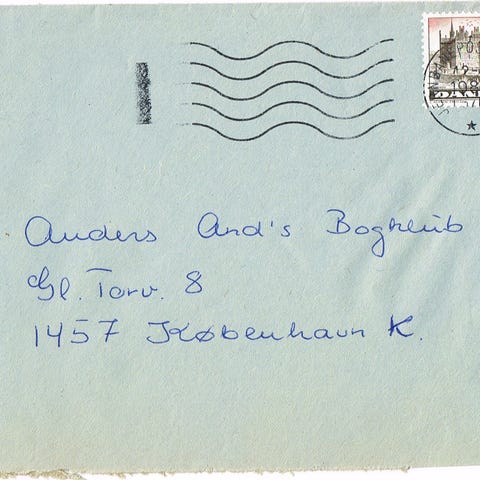 Anders And's Bogklub
Gl. Torv. 8
1457 København K.